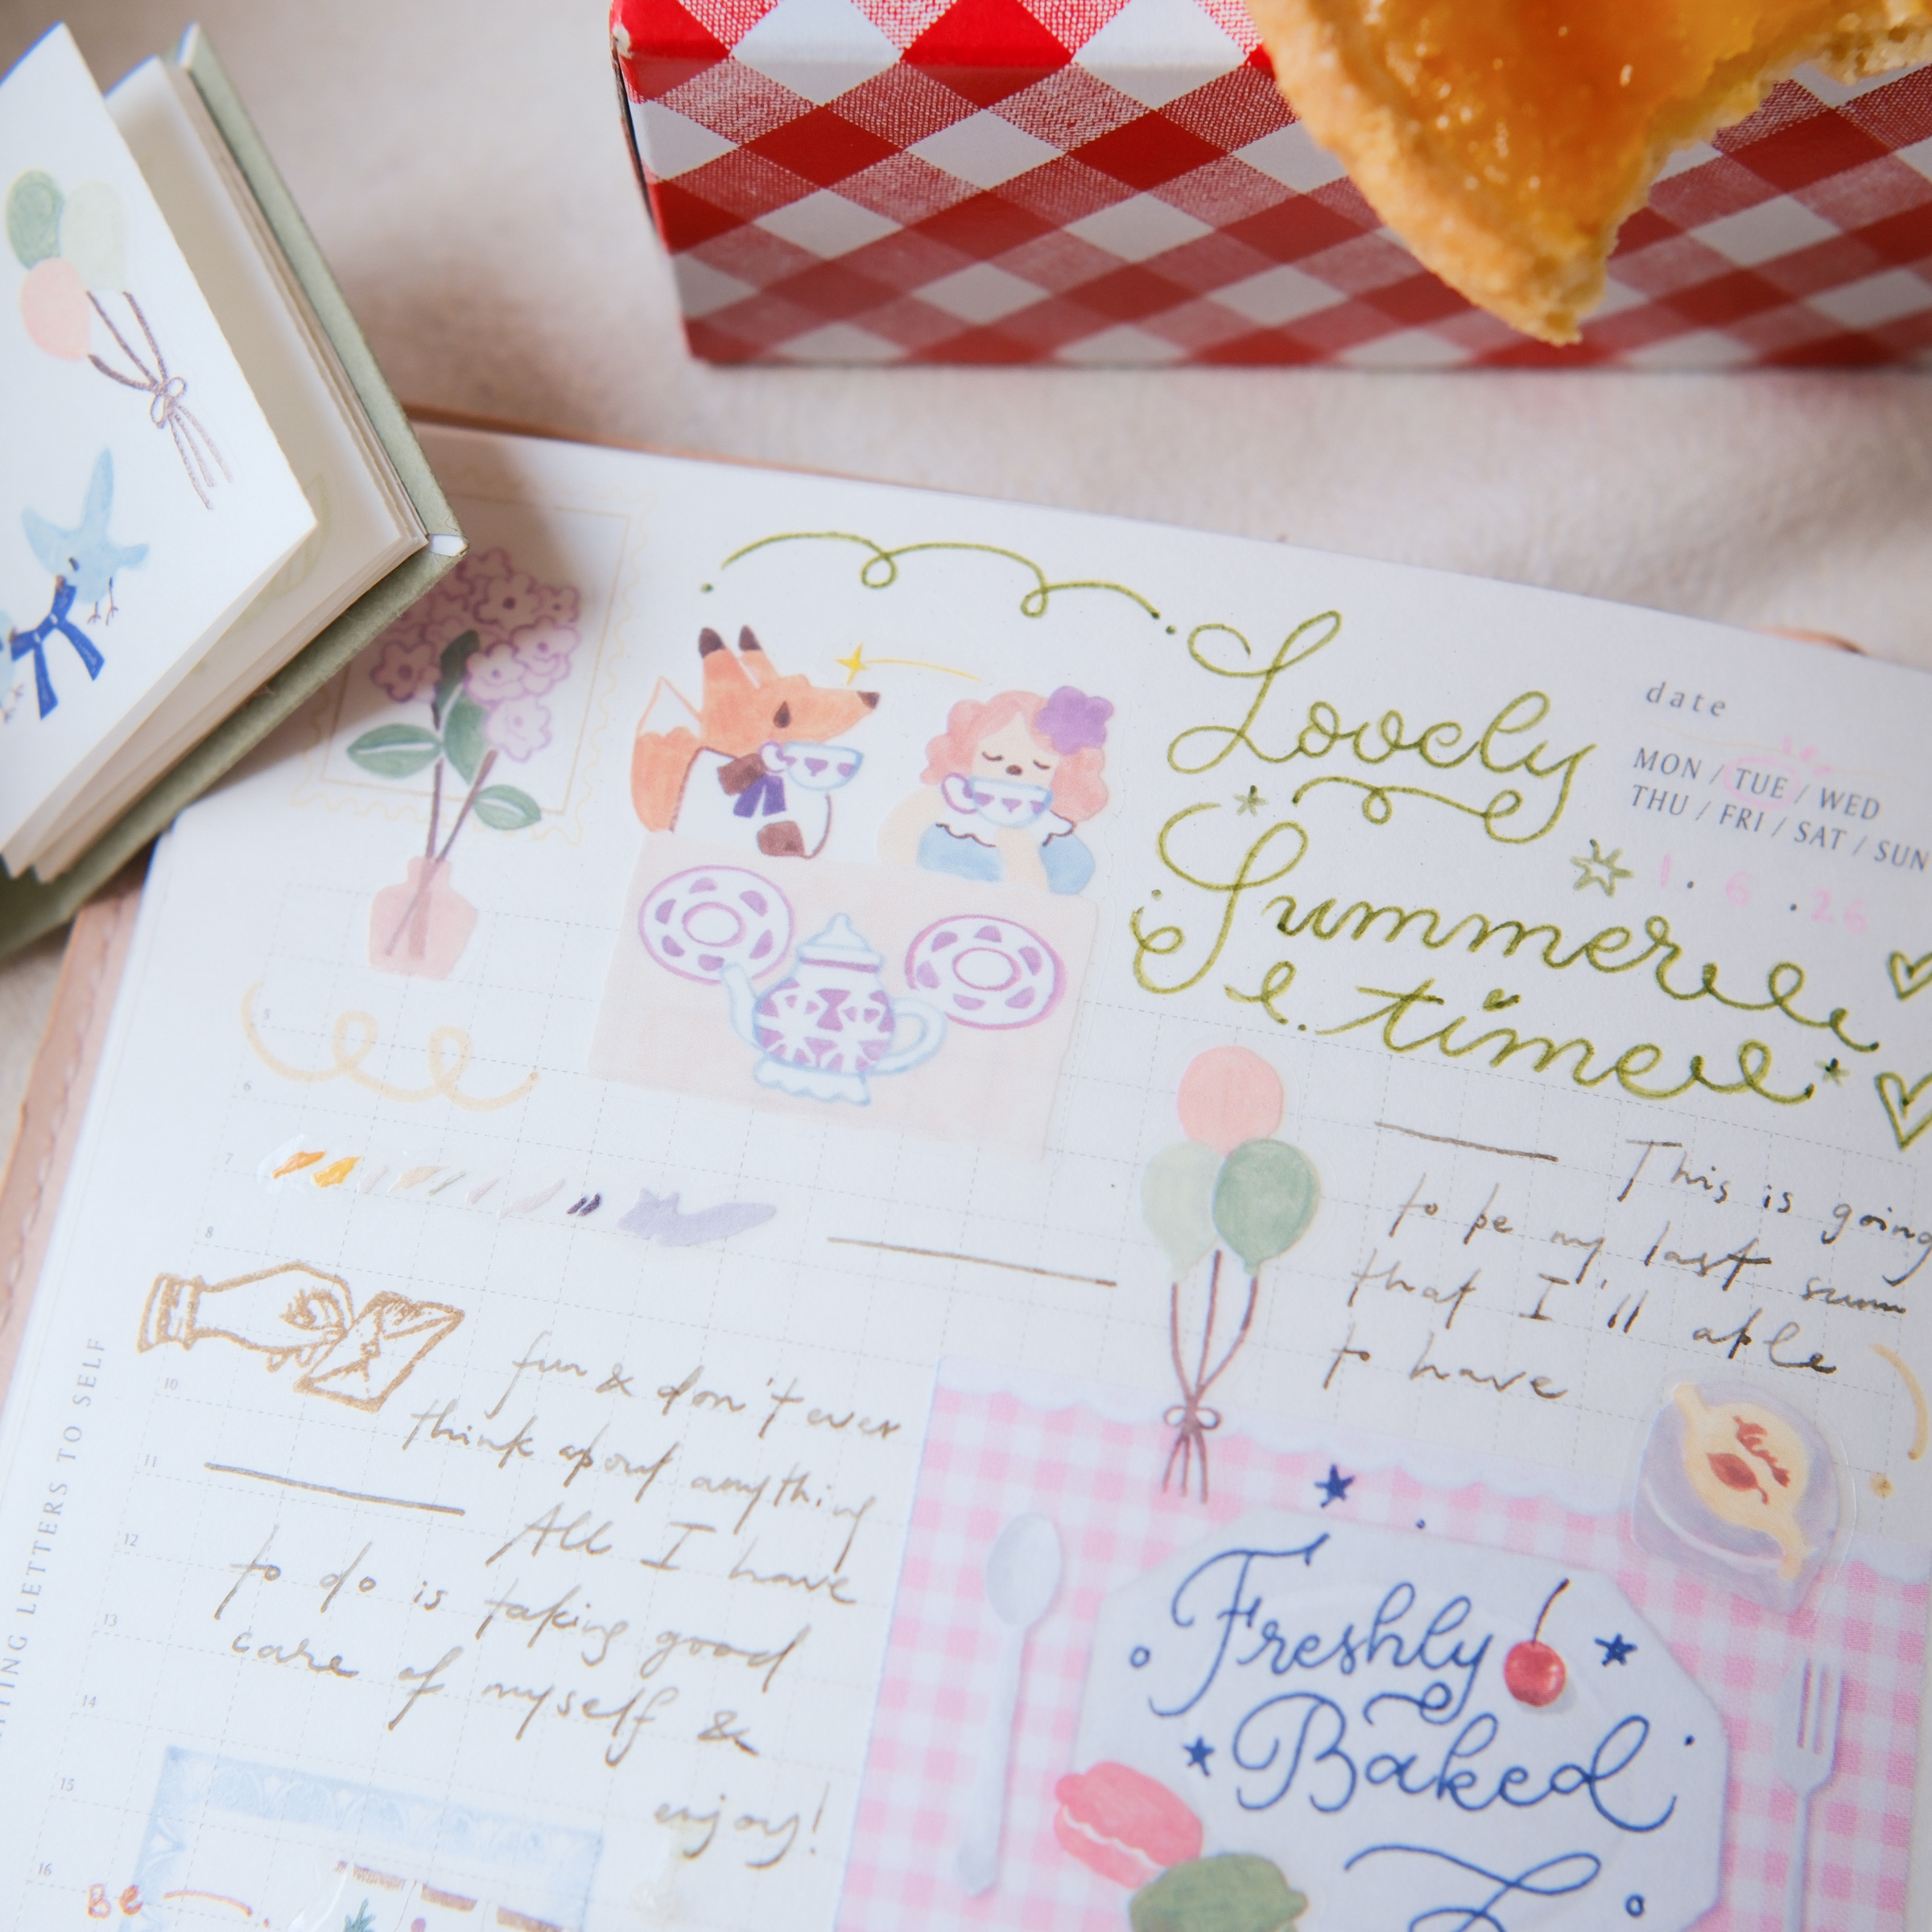 Lovely
Summer
time
date
MON / TUE / WED
THU / FRI / SAT / SUN
1.6.26
This is going
to be my last
that I'll able
to have
fun & don't ever
think about anything
All I have
to do is taking good
care of myself &
enjoy!
Freshly
Baked
5
6
7
8
10
11
12
13
14
15
16
Be
LETTERS TO SELF